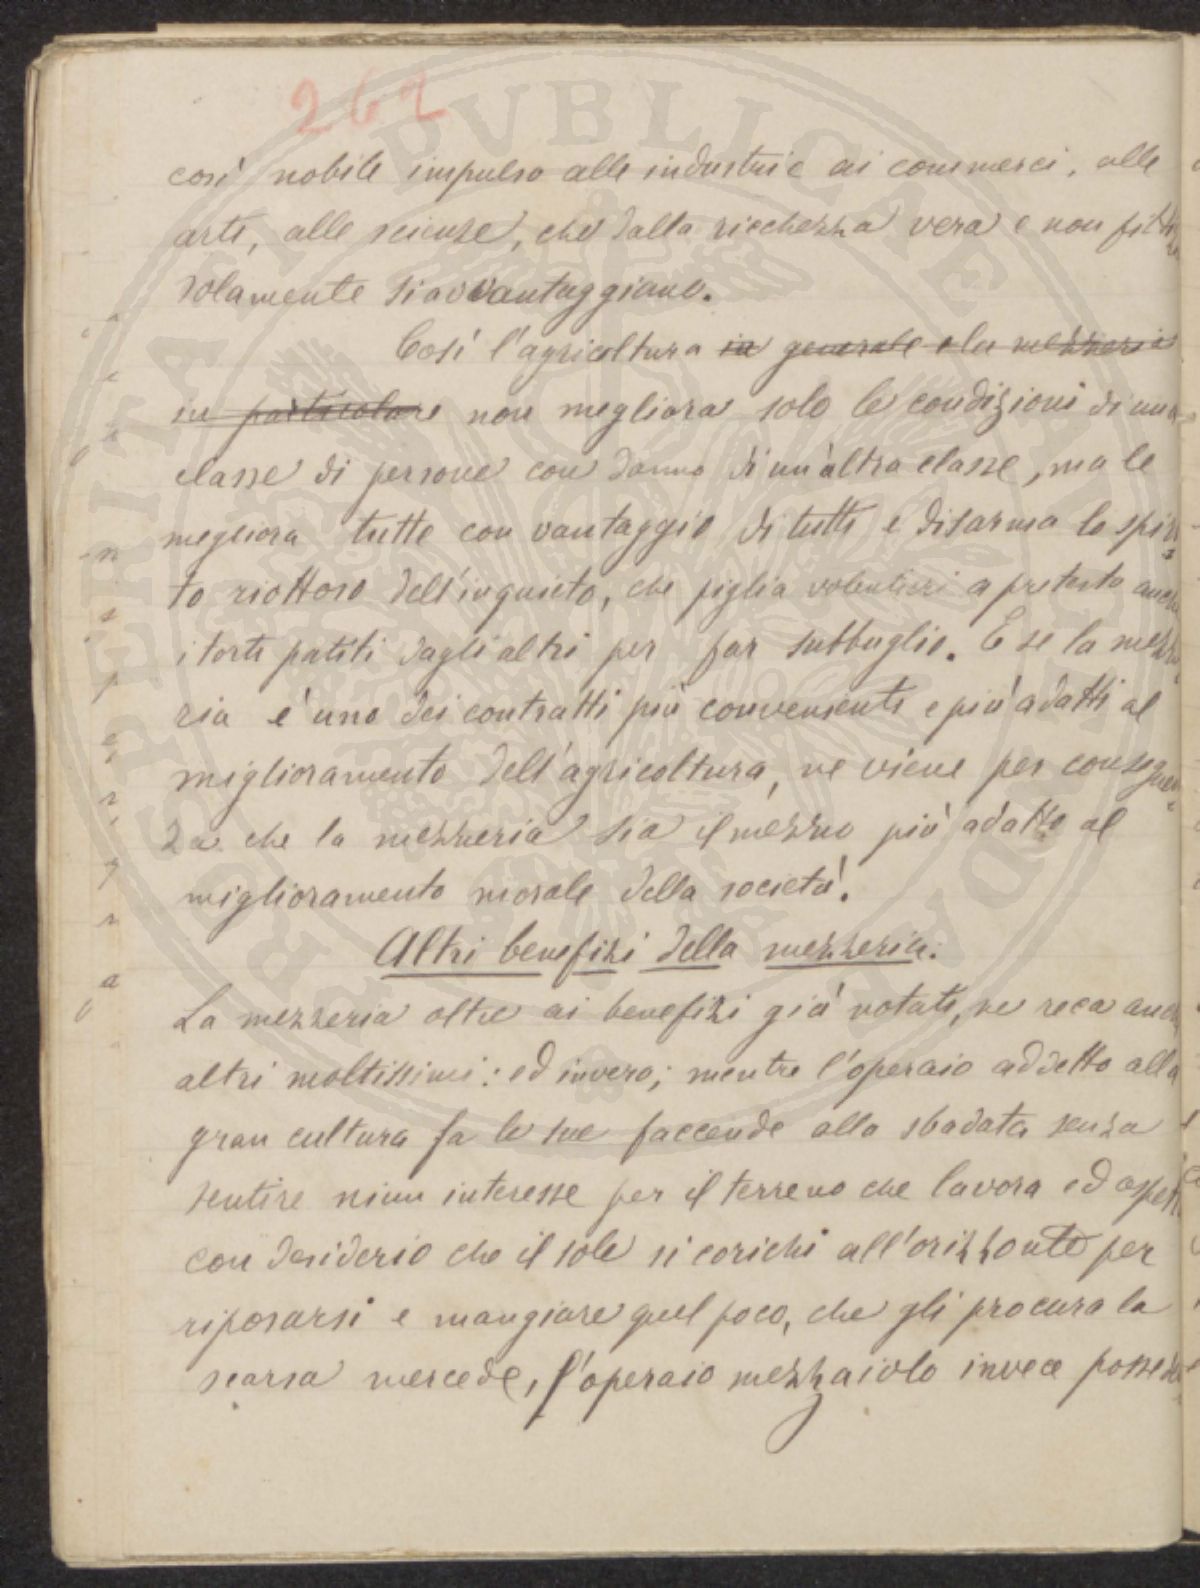 262
così nobile impulso alle industrie ai commerci, alle
arti, alle scienze, che dalla ricchezza vera e non fitti
solamente si avvantaggiano.
Così l'agricoltura in generale e la mezzeria
in particolare non megliora solo le condizioni di una
classe di persone con danno di un'altra classe, ma le
megliora tutte con vantaggio di tutti e disarma lo spiri
to riottoso dell'inquieto, che piglia volentieri a pretesto anche
i torti patiti dagli altri per far subbuglio. E se la mezze
ria è uno dei contratti più convenienti e più adatti al
miglioramento dell'agricoltura, ne viene per conseguen
za che la mezzeria sia il mezzo più adatto al
miglioramento morale della società.
Altri benefizi della mezzeria.
La mezzeria oltre ai benefizi già notati, ne reca anche
altri moltissimi: ed invero; mentre l'operaio addetto alla
gran cultura fa le sue faccende alla sbadata senza
sentire niun interesse per il terreno che lavora ed aspetta
con desiderio che il sole si corichi all'orizzonte per
riposarsi e mangiare quel poco, che gli procura la
scarsa mercede, l'operaio mezzaiolo invece possede
PROSPERITATI PVBLICAE AVGENDAE